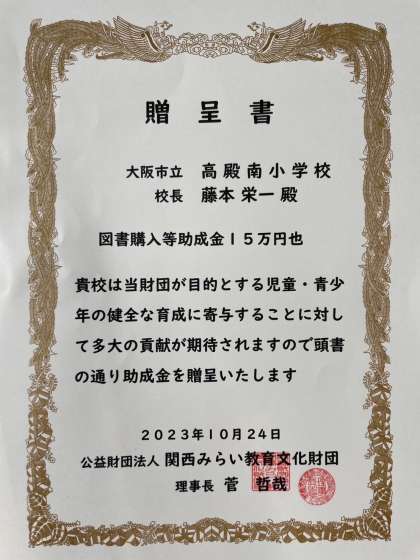 贈呈書
大阪市立 高殿南小学校
校長 藤本栄一殿
図書購入等助成金15万円也
貴校は当財団が目的とする児童・青少
年の健全な育成に寄与することに対し
て多大の貢献が期待されますので頭書
の通り助成金を贈呈いたします
2023年10月24日
公益財団法人 関西みらい教育文化財団
理事長 菅 哲哉